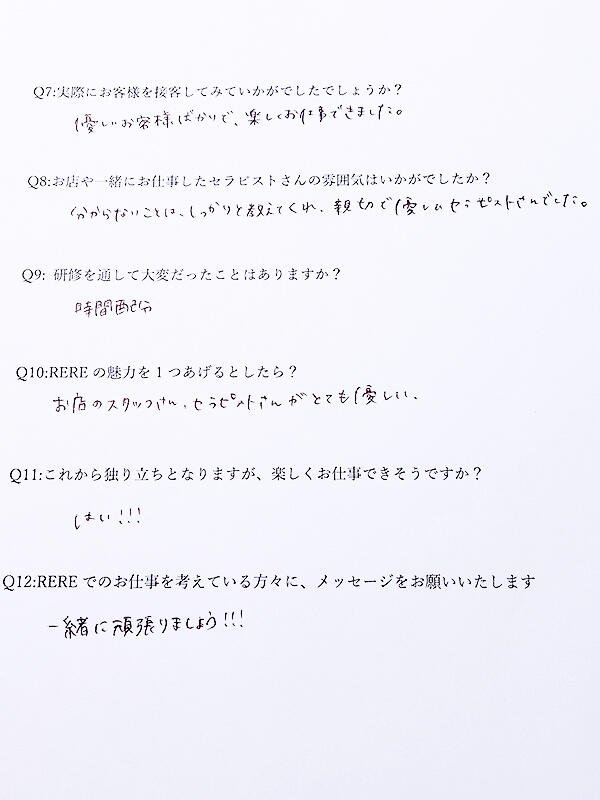 Q7:実際にお客様を接客してみていかがでしたでしょうか？
優しいお客様ばかりで、楽しくお仕事できました。
Q8:お店や一緒にお仕事したセラピストさんの雰囲気はいかがでしたか？
分からないことは、しっかりと教えてくれ、親切で優しいセラピストさんでした。
Q9: 研修を通して大変だったことはありますか？
時間配分
Q10:REREの魅力を1つあげるとしたら？
お店のスタッフさん、セラピストさんがとても優しい、
Q11:これから独り立ちとなりますが、楽しくお仕事できそうですか？
はい!!!
Q12:REREでのお仕事を考えている方々に、メッセージをお願いいたします
一緒に頑張りましょう!!!